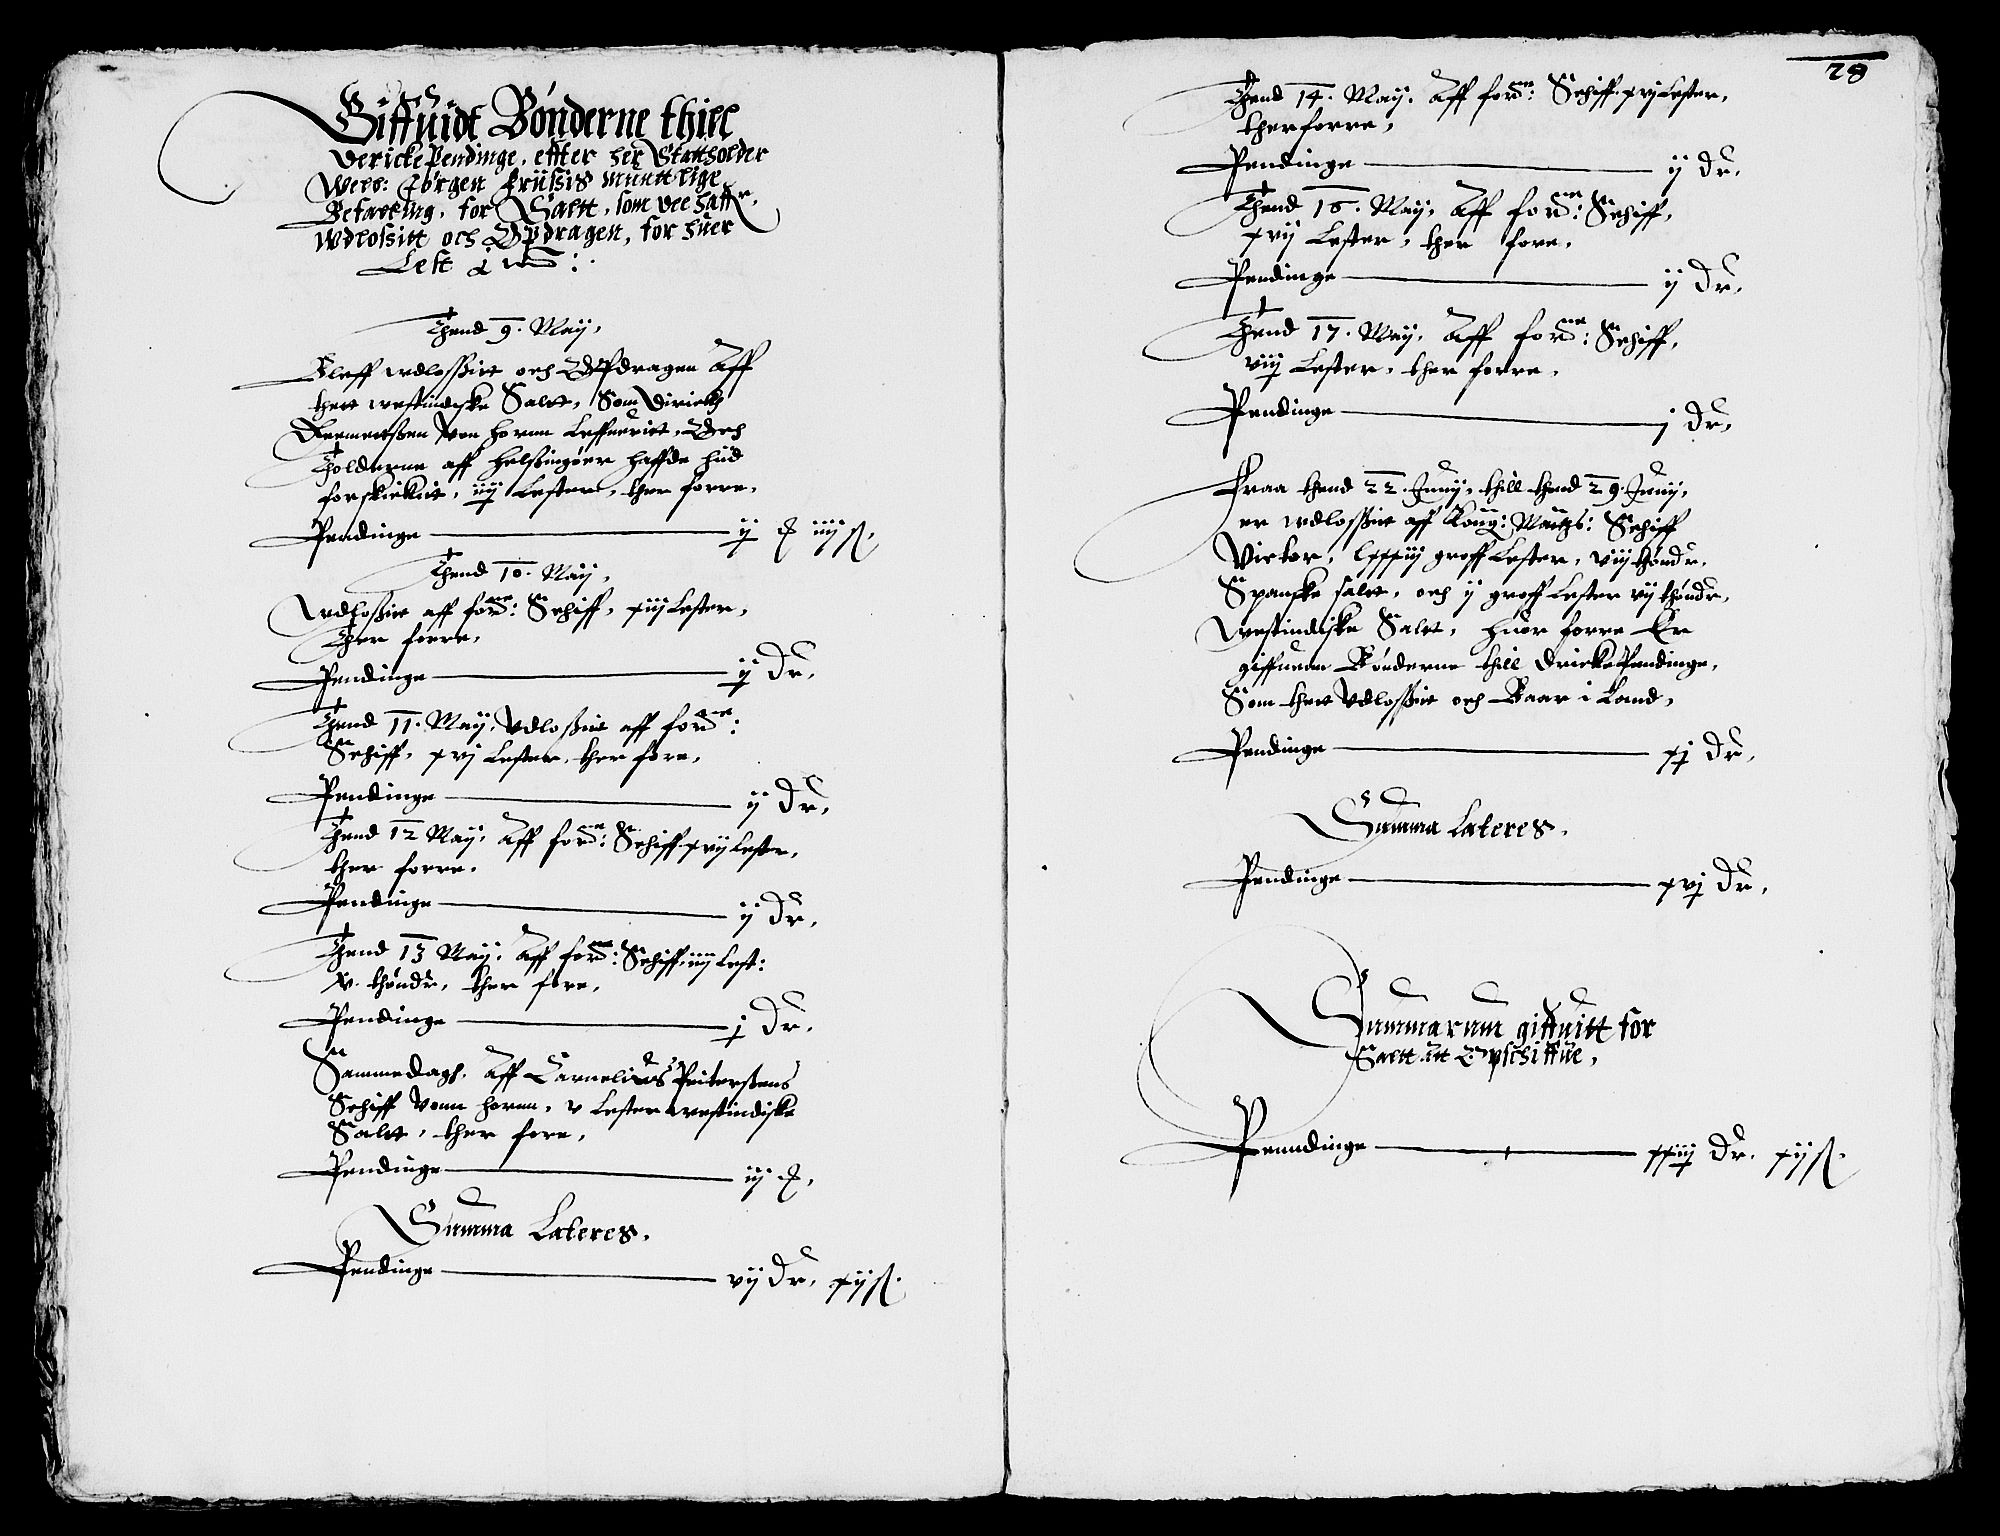 Giffuidt Bønderne thill
Dricke Pendinge, effter her Stattholder
Welb: Jørgen Friisis Munttlige
Befaling, for Saltt, som dee haffr.
Wdlossitt och Opdragen, for huer
Lest
Thend 9. Maij,
Bleff wdlossitt och Opdragen Aff
thett westindiske Saltt, Som Dirickh
von hornn Leffueritt, Och
Tholderne aff Helsingøer haffde hiid
forskickit, iiij Lester, ther forre,
Pendinge — ij iiij ß.
Thend 10. Maij,
Wdlossitt aff forne: Schiff, xiij Lester,
Ther forre,
Pendinge — ij Dr.
Thend 11. Maij, Vdlossit aff forne:
Schiff, xvj Lester, ther fore,
Pendinge — ij Dr,
Thend 12 Maij, Aff forne: Schiff xvij Lester,
ther forre.
Pendinge — ij Dr,
Thend 13 Maij, Aff forne: Schiff, iiij Lest:
thøndr, ther fore,
Pendinge — j Dr.
Sammedagh, Aff Carnelius Peitersens
Schiff vonn hornn, v Lester westindiske
Saltt, ther fore,
Pendinge — iij
Summa Lateres.
Pendinge — vij Dr, xij ß.
28
Thend 14. Maij. Aff forne: Schiff xvj Lester,
therforre,
Pendinge — ij Dr.
Thend 16. Maij, Aff forne: Schiff,
xvij Lester, ther fore,
Pendinge — ij Dr,
Thend 17. Maij, Aff forne: Schiff,
viij Lester, ther forre,
Pendinge — j Dr,
Fraa thend 22. Junij, thill thend 29. Junij,
er wdlossit aff Kong: Maytts: Schiff
Victor, lxxxiij groff Lester, viij thøndr,
Spanske saltt, och ij groff Lester vij thøndr,
westindiske Saltt, huor forre Er
giffuenn Bønderne thill Dricke Pendinge,
Som thett Vdlossit och Baar i Land,
Pendinge — xj Dr,
Summa Lateres.
Pendinge — xvj Dr,
Summarum giffuitt for
Saltt att Opschiffue,
Penndinge — xxiij Dr. xij ß.